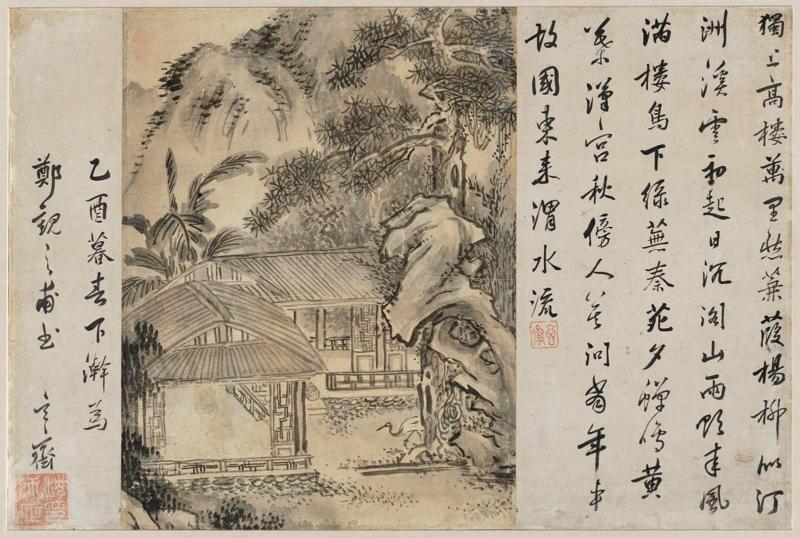 獨上高樓萬里愁蒹葭楊柳似汀
洲溪雲初起日沉閣山雨欲來風
滿樓鳥下綠蕪秦苑夕蟬鳴黃
葉漢宮秋傍人莫問當年事
故國東來渭水流
乙酉暮春下澣為
鄭親之甫書